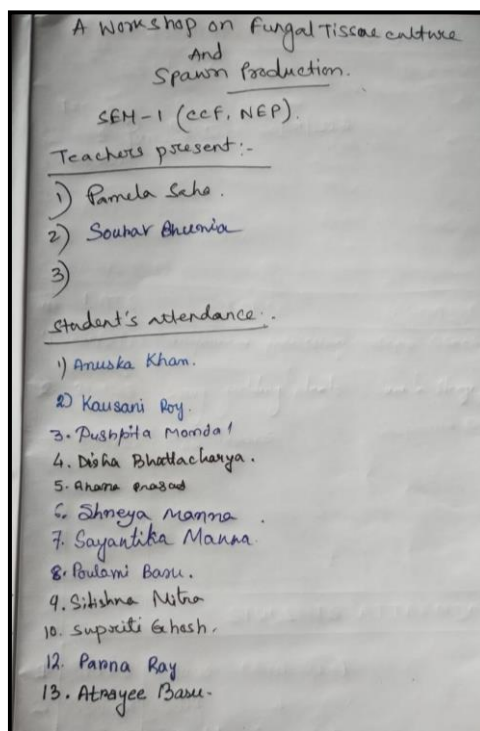 A Workshop on Fungal Tissue culture
And
Spawn Production.
SEM-1 (CCF, NEP).
Teachers present:-
1) Pamela Saha.
2) Sourav Bhunia
3)
Student's attendance:.
1) Anuska Khan.
2) Kausani Roy.
3. Pushpita Mondal
4. Disha Bhattacharya.
5. Ahana Prasad
6. Shreya Manna.
7. Sayantika Manna.
8. Poulami Basu.
9. Mitra
10. Supriti Ghosh.
12. Panna Ray
13. Atrayee Basu.